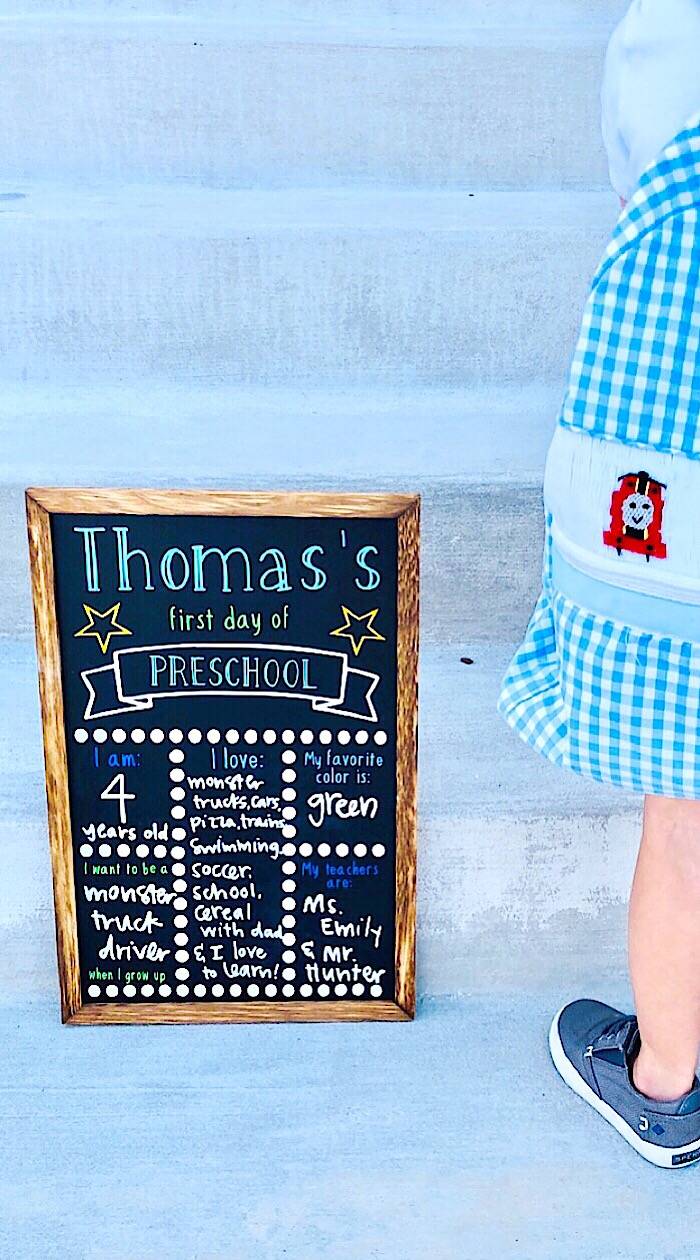 Thomas's
first day of
PRESCHOOL
I am:
4
years old
I love:
monster
trucks, cars,
pizza, trains,
swimming,
soccer,
school,
cereal
with dad
& I love
to learn!
My favorite
color is:
green
I want to be a
monster
truck
driver
when I grow up
My teachers
are:
Ms.
Emily
& Mr.
Hunter